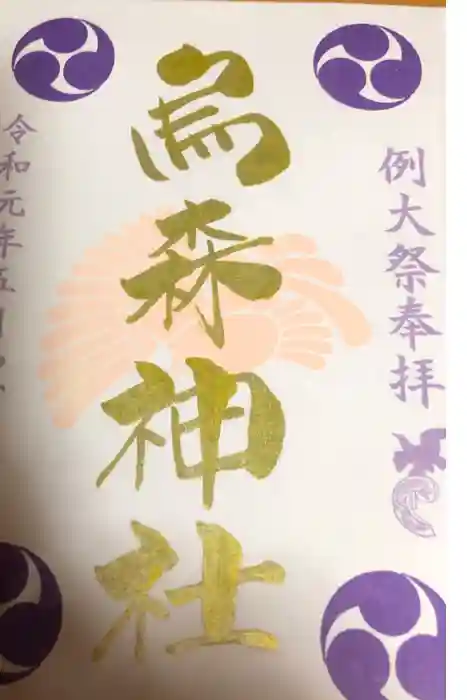 例大祭奉拝
烏森神社
令和元年五月